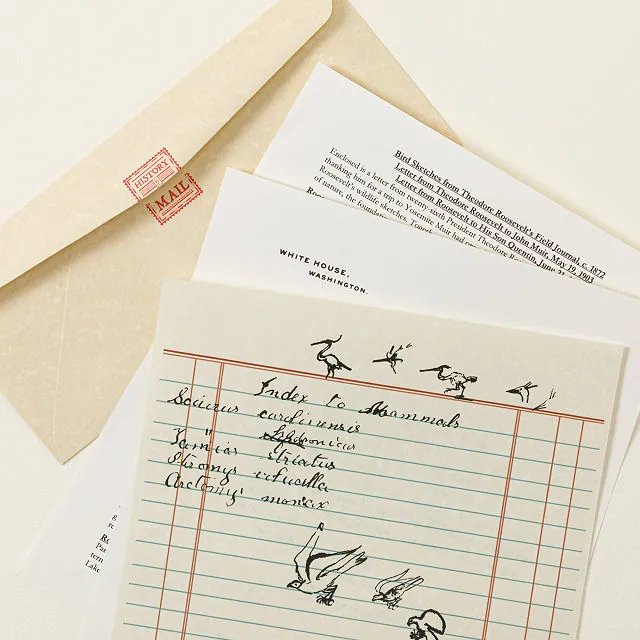 HISTORY
MAIL
Bird Sketches from Theodore Roosevelt's Field Journal, c. 1872
Letter from Theodore Roosevelt to John Muir, May 19, 1903
Letter from Roosevelt to His Son Quentin, June 21,
Enclosed is a letter from twenty-sixth President Theodore Ro
thanking him for a trip to Yosemite Muir had
Roosevelt's wildlife sketches.
of nature, the
WHITE HOUSE,
WASHINGTON.
Index to Mammals
Sciurus carolinensis
" 
Tamias striatus
Arctomys monax
Par
tern
Lake